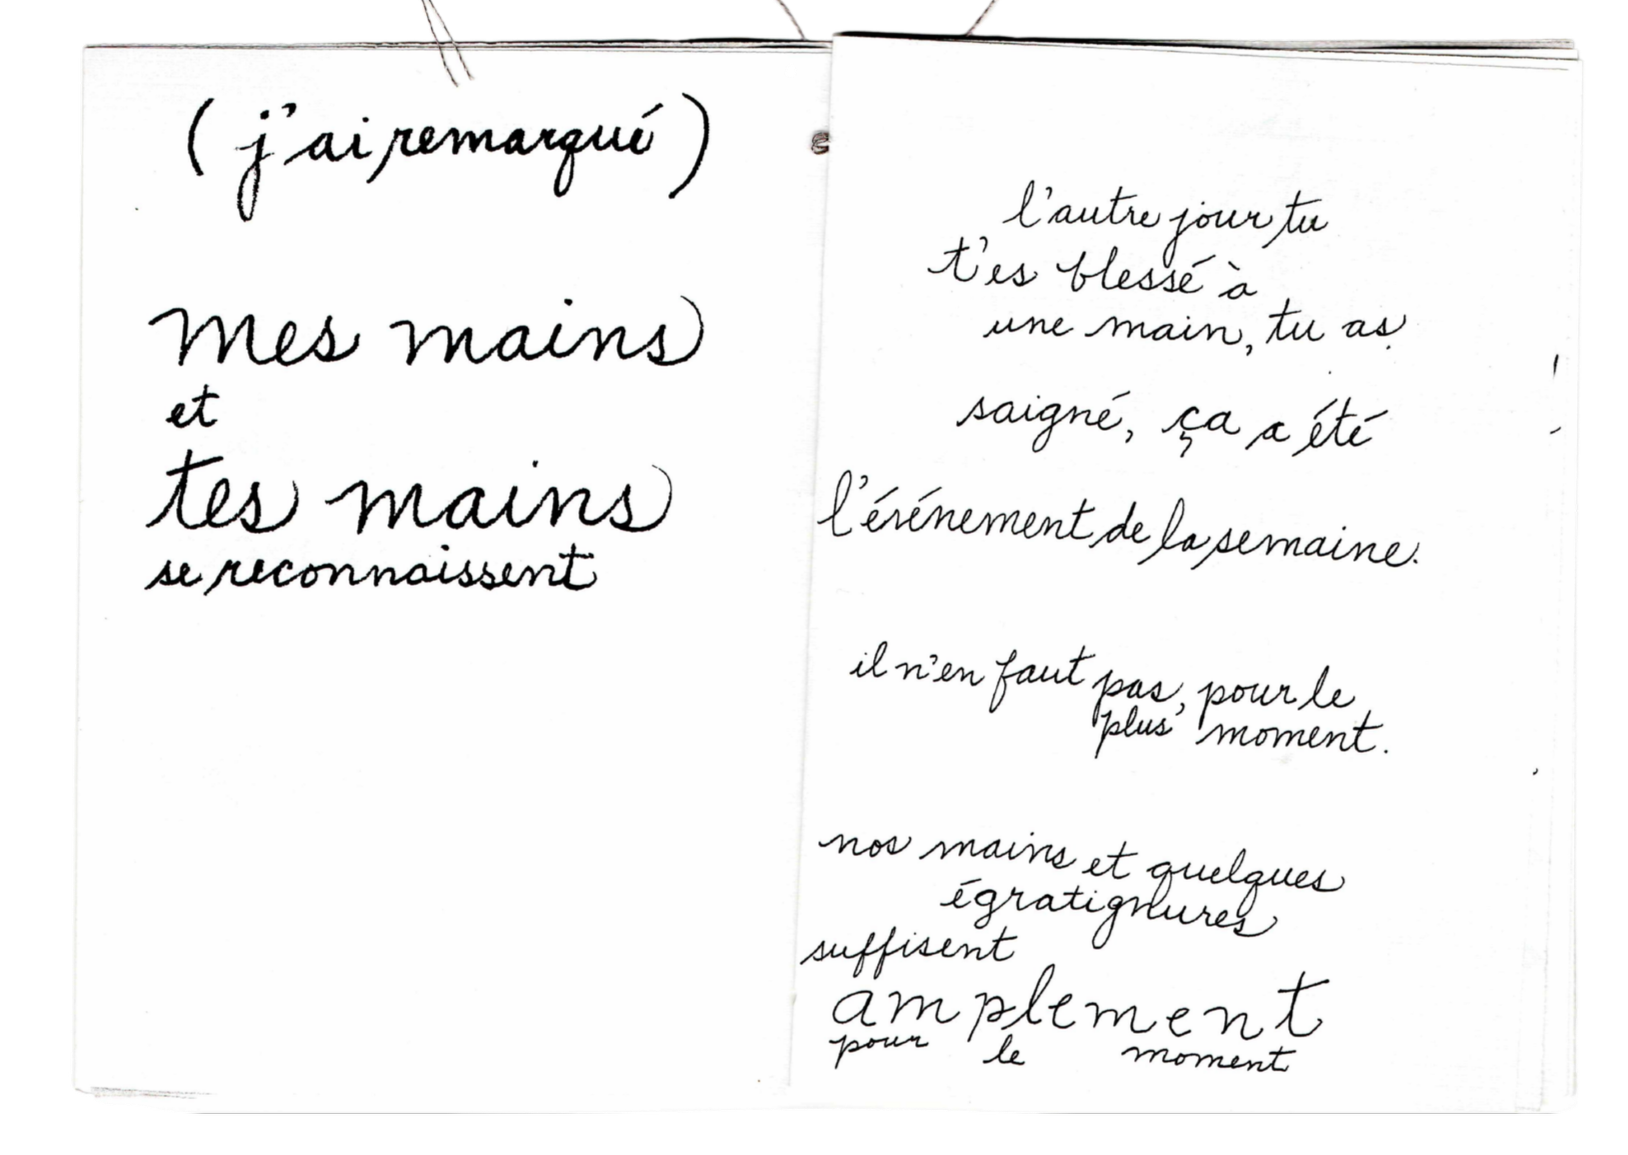 (j'ai remarqué)
mes mains
et
tes mains
se reconnaissent
l'autre jour tu
t'es blessé à
une main, tu as
saigné, ça a été
l'événement de la semaine.
il n'en faut pas, pour le
plus moment.
nos mains et quelques
égratignures
suffisent
amplement
pour le moment